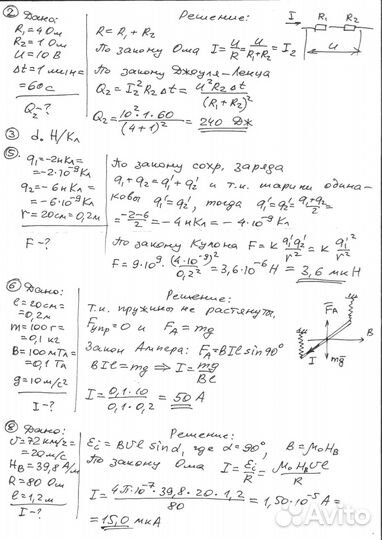 ② Дано:
R₁=4 Ом
R₂=1 Ом
U=10 В
Δt=1 мин=
=60с
Q₂-?
Решение:
R=R₁+R₂
По закону Ома I=U/R=U/(R₁+R₂)=I₂
По закону Джоуля-Ленца
Q₂=I₂²R₂Δt=U²R₂Δt/(R₁+R₂)²
Q₂=10²·1·60/(4+1)²=240 Дж
I R₁ R₂
U
③ d. Н/Кл
⑤.
q₁=-2нКл=
=-2·10⁻⁹Кл
q₂=-6нКл=
=-6·10⁻⁹Кл
r=20см=0,2м
F-?
По закону сохр. заряда
q₁+q₂=q₁'+q₂' и т.к. шарики одина-
ковы q₁'=q₂', тогда q₁'=q₂'=(q₁+q₂)/2=
=(-2-6)/2=-4нКл=-4·10⁻⁹Кл
По закону Кулона F=k q₁'q₂'/r²=k q₁'²/r²
F=9·10⁹·(4·10⁻⁹)²/0,2²=3,6·10⁻⁶Н=3,6 мкН
⑥ Дано:
l=20см=
=0,2м
m=100г=
=0,1 кг
B=100мТл=
=0,1 Тл
g=10м/с²
I-?
Решение:
Т.к. пружины не растянуты,
Fупр=0 и F_A=mg
Закон Ампера: F_A=BIl sin90°
BIl=mg ⇒ I=mg/Bl
I=0,1·10/0,1·0,2=50 А
F_A
B
I mg
⑧ Дано:
v=72км/ч=
=20м/с
H_B=39,8 А/м
R=80 Ом
l=1,2м
I-?
Решение:
ℰi=Bvl sinα, где α=90°, B=μ₀H_B
По закону Ома I=ℰi/R=μ₀H_Bvl/R
I=4π·10⁻⁷·39,8·20·1,2/80=1,50·10⁻⁵А=
=15,0 мкА
Avito